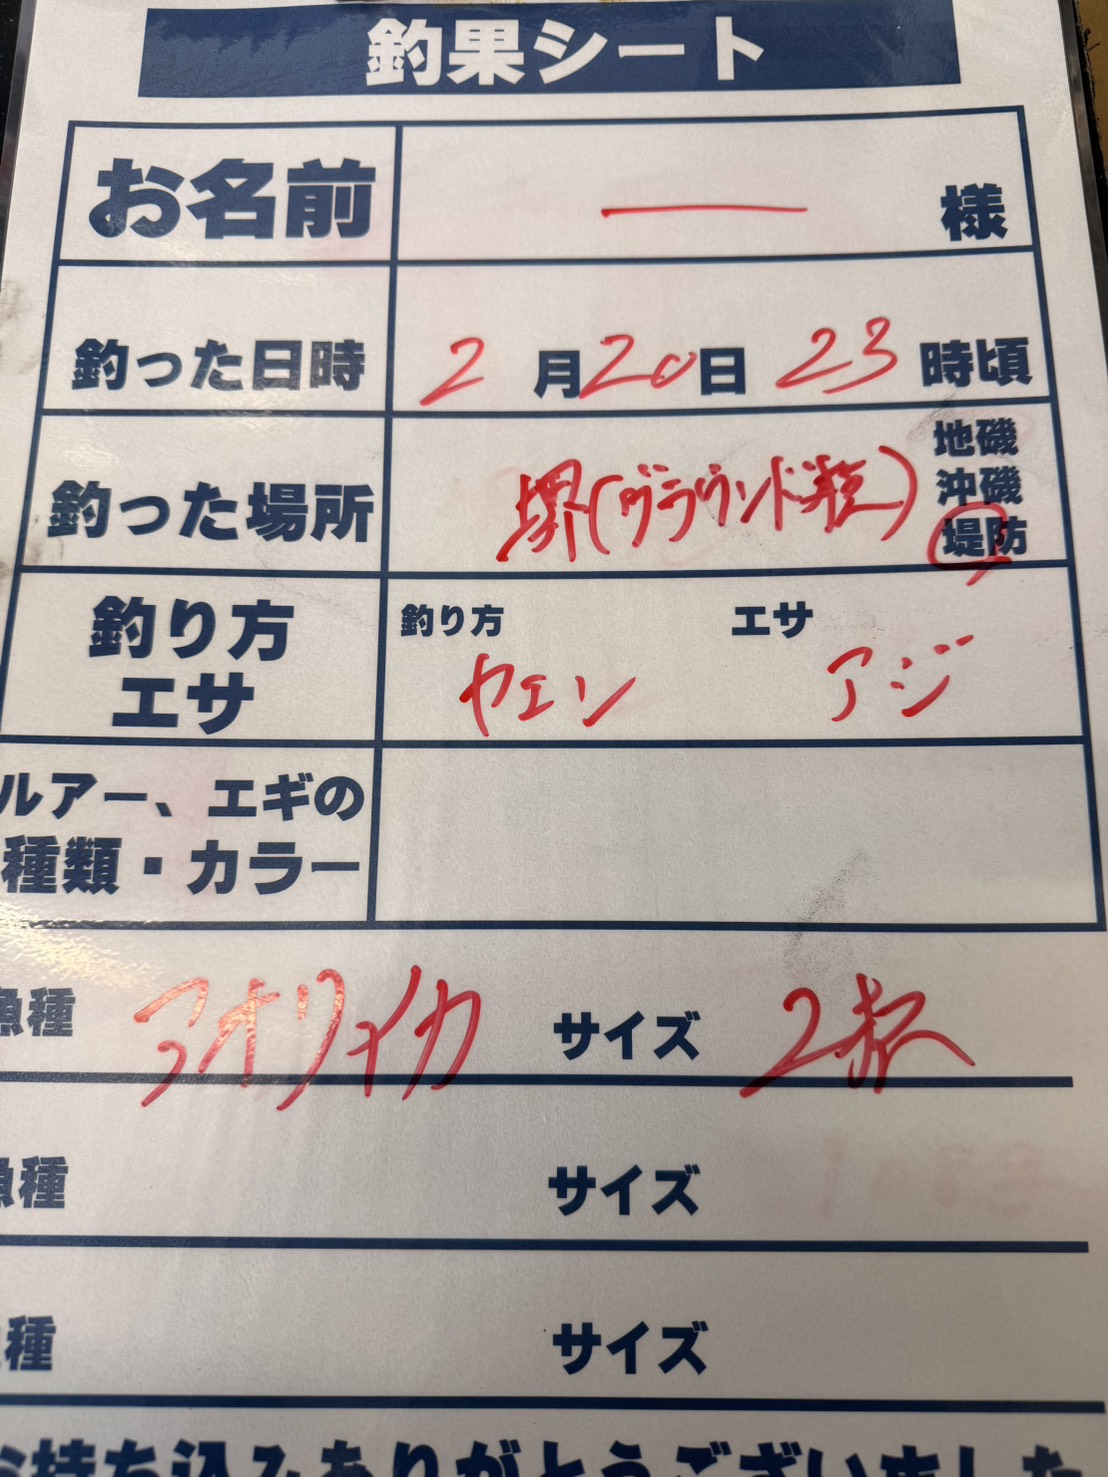 釣果シート
お名前 ― 様
釣った日時 2月20日 23時頃
釣った場所 堺(グラウンド裏) 地磯
沖磯
堤防
釣り方 エサ
釣り方 ヤエン エサ アジ
ルアー、エギの
種類・カラー
魚種 アオリイカ サイズ 2杯
魚種 サイズ
種 サイズ
お持ち込みありがとうございました